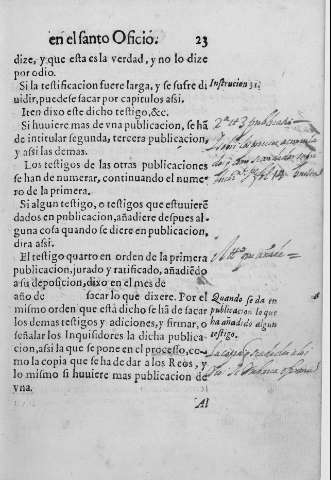 en el santo Oficio. 23
dize, y que esta es la verdad, y no lo dize
por odio.
Si la testificacion fuere larga, y se sufre di
uidir, puedese sacar por capitulos assi.
Iten dixo este dicho testigo, &c.
Si huuiere mas de vna publicacion, se hã
de intitular segunda, tercera publicacion,
y assi las demas.
Los testigos de las otras publicaciones
se han de numerar, continuando el nume-
ro de la primera.
Si algun testigo, o testigos que estuuierẽ
dados en publicacion, añadiere despues al-
guna cosa quando se diere en publicacion,
dira assi.
El testigo quarto en orden de la primera
publicacion, jurado y ratificado, añadiẽdo
a su deposicion, dixo en el mes de
año de sacar lo que dixere. Por el
mismo orden que está dicho se hã de sacar
los demas testigos y adiciones, y firmar, o
señalar los Inquisidores la dicha publica-
cion, assi la que se pone en el processo, co-
mo la copia que se ha de dar a los Reos, y
lo mismo si huuiere mas publicacion de
vna.
Al
Instrucion 31.
2ª et 3 publicaci
Quando se da en
publicacion lo que
ha añadido algun
testigo.